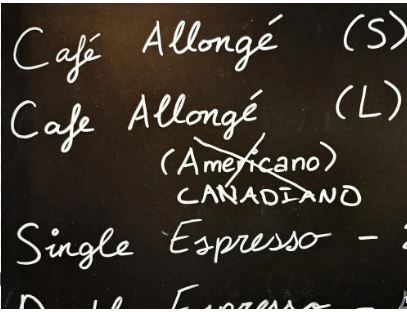 Café Allongé (S)
Cafe Allongé (L)
(Americano)
CANADIANO
Single Espresso -
Espresso -